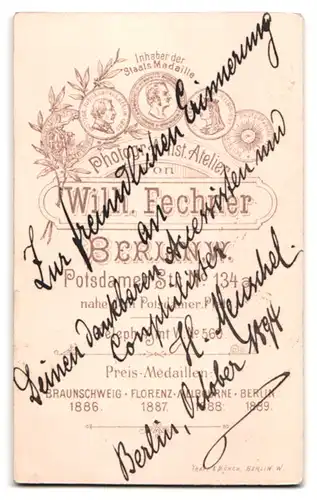 Inhaber der
Staats Medaille.
Photogr. Kunst-Atelier
von
Wilh. Fechner
BERLIN W.
Potsdamer Str. No. 134a
nahe dem Potsdamer Pl.
Telephon Amt VI No 560
Preis-Medaillen
BRAUNSCHWEIG · FLORENZ · MELBOURNE · BERLIN
1886. 1887. 1888. 1889.
BERLIN W.
Zur freundlichen Erinnerung
an
Deinen dankbaren und
H. Menschel.
Berlin, October 1894